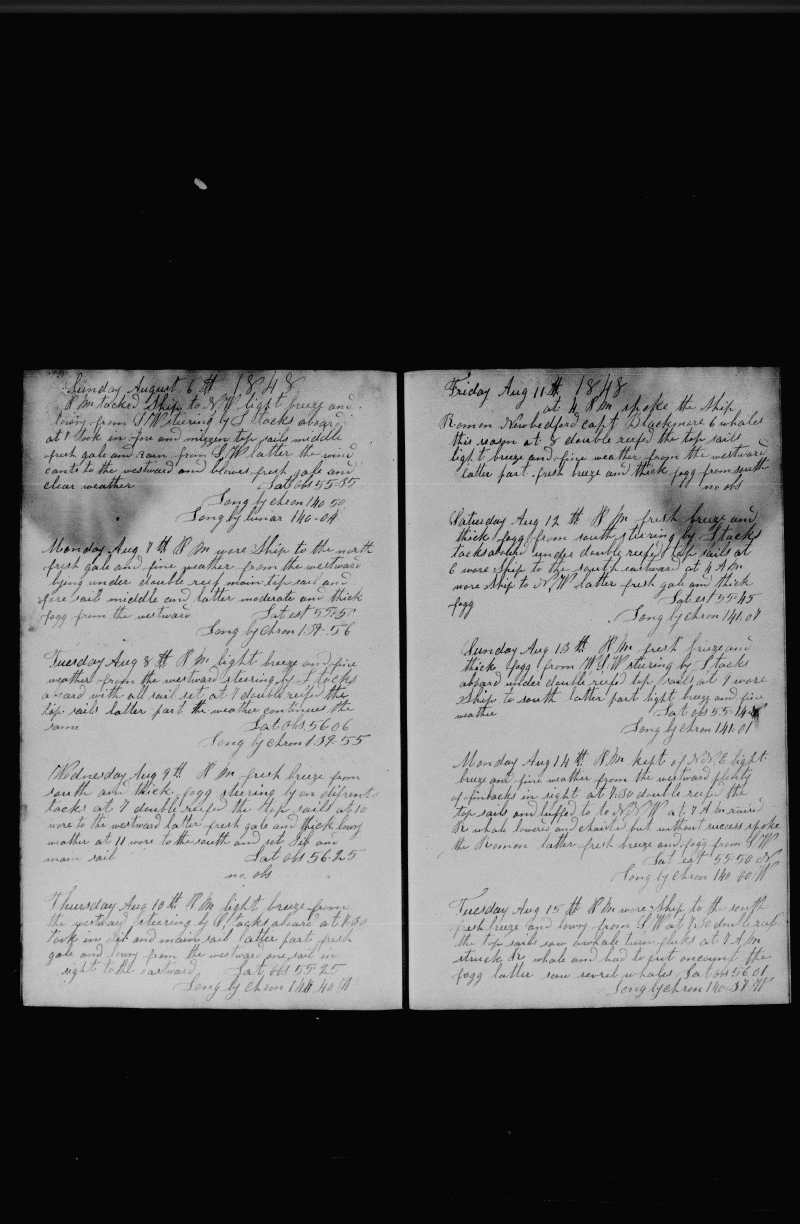 Sunday August 6th 1848
P M tacked Ship to N W light breeze and
lowry from S W steering by S tacks aboard
at 7 took in fore and mizzen top sails middle
fresh gale and rain from S W latter the wind
cants to the westward and blows fresh gale and
clear weather Lat obs 55-35
Long by chron 140 50
Long by lunar 140-04
Monday Aug 7th P M wore Ship to the north
fresh gale and fine weather from the westward
lying under double reef main top sail and
fore sail middle and latter moderate and thick
fogg from the westward Lat est 55-5
Long by Chron 139-56
Tuesday Aug 8th P M light breeze and fine
weather from the westward steering by S tacks
aboard with all sail set at 7 double reefed the
top sails latter part the weather continues the
same Lat Obs 56 06
Long by chron 139-55
Wednesday Aug 9th P M fresh breeze from
south and thick fogg steering by on difrent
tacks at 7 double reefed the top sails at 10
wore to the westward Latter fresh gale and thick lowry
weather at 11 wore to the south and set Jib and
main sail Lat obs 56-25
no obs
Thursday Aug 10th P M light breeze from
the westward steering by P tacks aboard at 7-30
took in Jib and main sail latter part fresh
gale and lowry from the westward one sail in
sight to the eastward Lat obs 55-25
Long by Chron 144,40 W
Friday Aug 11th 1848
at 4 P M spoke the Ship
Roman Newbedford capt Blackmere 6 whales
this season at 8 double reefed the top sails
light breeze and fine weather from the westward
latter part fresh breeze and thick fogg from south
no obs
Saturday Aug 12th P M fresh breeze and
thick fogg from south steering by S tacks
tacks aboard under double reefed top sails at
6 wore Ship to the south eastward at 4 A M
wore Ship to N W latter fresh gale and thick
fogg Lat est 55-45
Long by Chron 141.07
Sunday Aug 13th P M fresh breeze and
thick fogg from W S W steering by S tacks
aboard under double reefed top sails at 7 wore
Ship to south latter part light breeze and fine
weather Lat obs 55-14
Long by chron 141-01
Monday Aug 14th P M kept of N N E light
breeze and fine weather from the westward plenty
of finbacks in sight at 7.30 double reefed the
top sails and luffed to to N N W at 7 A M raised
R whale lowered and chaised but without success spoke
the Roman latter fresh breeze and fogg from S W
Lat est 55 50 N
Long by Chron 140 00 W
Tuesday Aug 15th P M wore Ship to the south
fresh breeze and lowry from S W at 7.30 double reefed
the top sails saw a whale turn fluks at 7 A M
struck R whale and had to put on count the
fogg latter saw sevril whales Lat obs 56 01
Long by chron 140-37 W